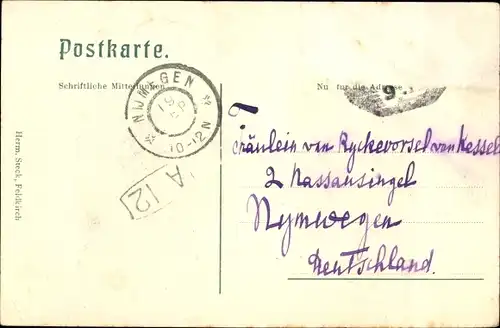 Postkarte.
Schriftliche Mitteilungen
Nu für die Adresse
NIJMEGEN
10-12 N
9.
A 12
Herm. Steck, Feldkirch
Fräulein van Ryckevorsel van Kessel
2 Nassausingel
Nymwegen
Deutschland.